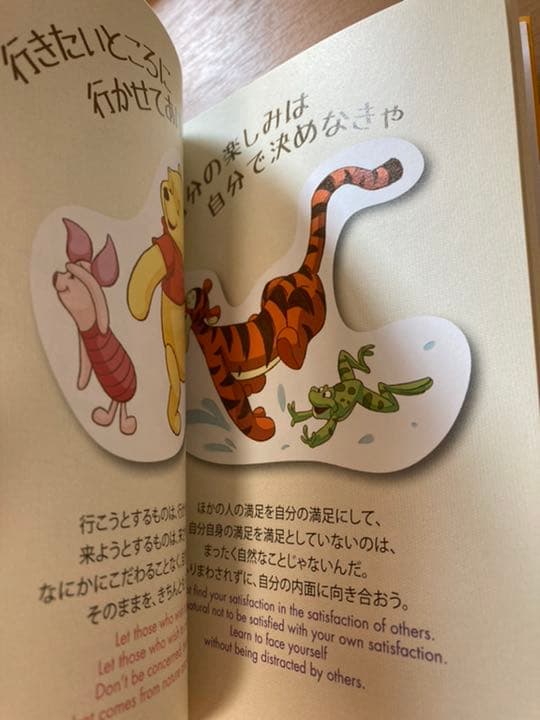 行きたいところに
行かせて
行こうとするものは、
来ようとするものは、
なにかにこだわることなく、
そのままを、きちんと
Let those who
Let those who wish
Don't be concerned
comes from nature
分の楽しみは
自分で決めなきゃ
ほかの人の満足を自分の満足にして、
自分自身の満足を満足としていないのは、
まったく自然なことじゃないんだ。
りまわされずに、自分の内面に向き合おう。
find your satisfaction in the satisfaction of others.
natural not to be satisfied with your own satisfaction.
Learn to face yourself
without being distracted by others.